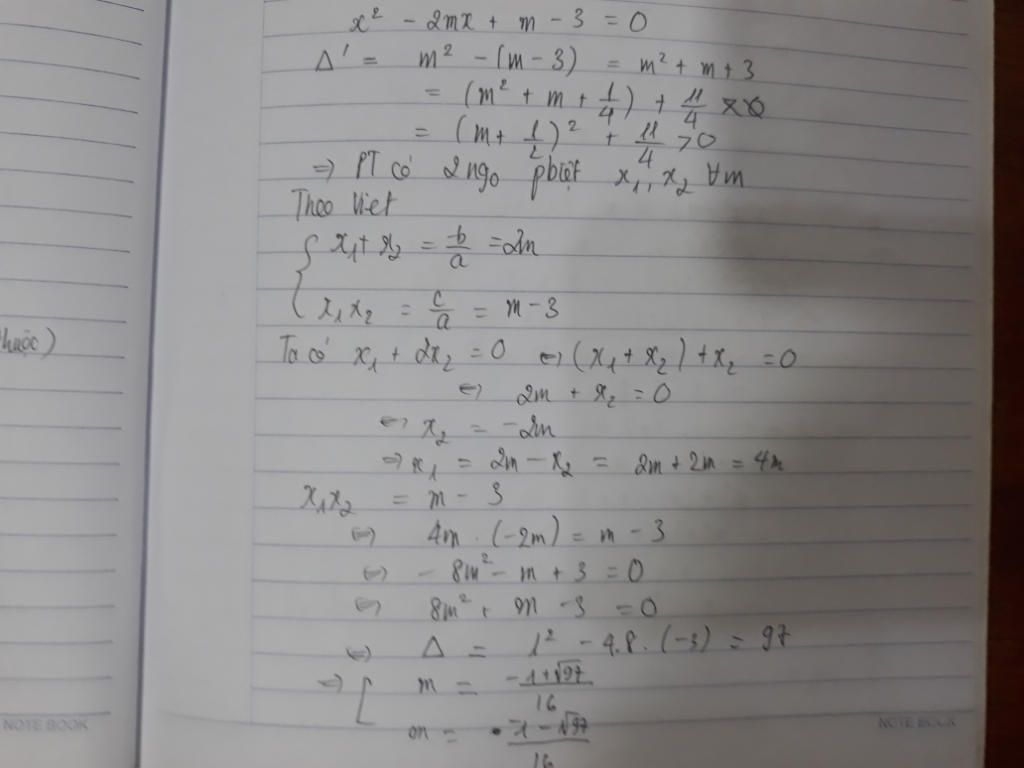 x² - 2mx + m - 3 = 0
Δ' = m² - (m - 3) = m² + m + 3
= (m² + m + 1/4) + 11/4
= (m + 1/2)² + 11/4 > 0
⇒ PT có 2 ngo pbiệt x₁, x₂ ∀m
Theo Viet
{ x₁ + x₂ = b/a = 2m
x₁x₂ = c/a = m - 3
thuộc)
Ta có x₁ + 2x₂ = 0 ⇔ (x₁ + x₂) + x₂ = 0
⇔ 2m + x₂ = 0
⇔ x₂ = -2m
⇒ x₁ = 2m - x₂ = 2m + 2m = 4m
x₁x₂ = m - 3
⇔ 4m . (-2m) = m - 3
⇔ - 8m² - m + 3 = 0
⇔ 8m² + m - 3 = 0
⇔ Δ = 1² - 4.8.(-3) = 97
⇒ [ m = -1+√97/16
m = -1-√97/16
NOTE BOOK
NOTE BOOK